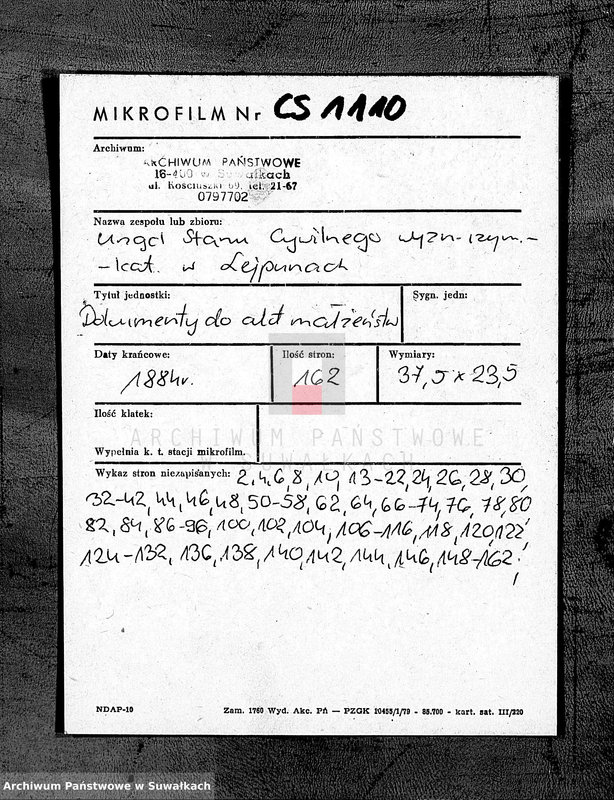 MIKROFILM Nr CS 1110
Archiwum:
ARCHIWUM PAŃSTWOWE
16-400 w Suwałkach
ul. Kościuszki 69. tel. 21-67
0797702
Nazwa zespołu lub zbioru:
Urząd Stanu Cywilnego wyzn-rzym.-
-kat. w Lejpunach
Tytuł jednostki:
Sygn. jedn:
Dokumenty do akt małżeństw
Daty krańcowe:
Ilość stron:
Wymiary:
1884r.
162
37,5 x 23,5
Ilość klatek:
ARCHIWUM PAŃSTWOWE
W SUWAŁKACH
Wypełnia k. t. stacji mikrofilm.
Wykaz stron niezapisanych: 2,4,6,8,10,13-22,24,26,28,30,
32-42,44,46,48,50-58,62,64,66-74,76,78,80
82,84,86-96,100,102,104,106-116,118,120,122,
124-132,136,138,140,142,144,146,148-162;
NDAP-10
Zam. 1760 Wyd. Akc. Pń — PZGK 10455/1/79 - 85.700 - kart. sat. III/220
Archiwum Państwowe w Suwałkach